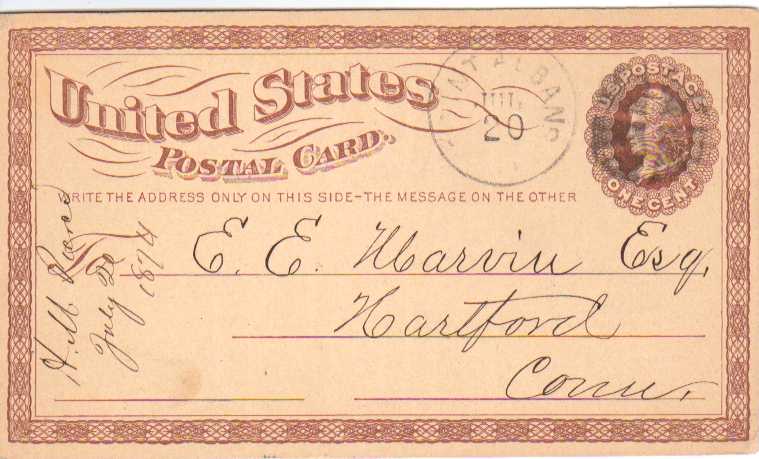 United States
POSTAL CARD.
WRITE THE ADDRESS ONLY ON THIS SIDE-THE MESSAGE ON THE OTHER
SAINT ALBANS
JUL
20
U.S. POSTAGE
ONE CENT
E. E. Marvin Esq.
Hartford
Conn.
H. M.
July 20
1874